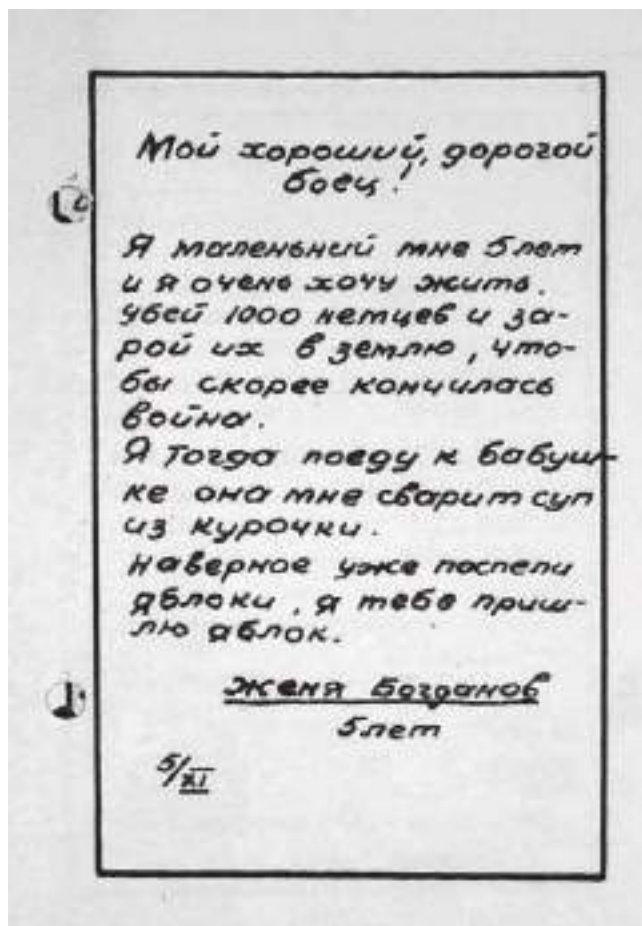 Мой хороший, дорогой
боец!
Я маленьний мне 5 лет
и я очень хочу жить.
убей 1000 немцев и за-
рой их в землю, что-
бы скорее кончилась
война.
Я тогда поеду к бабуш-
ке она мне сварит суп
из курочки.
наверное уже поспели
яблоки, я тебе приш-
лю яблок.
Женя Богданов
5 лет
5/XI